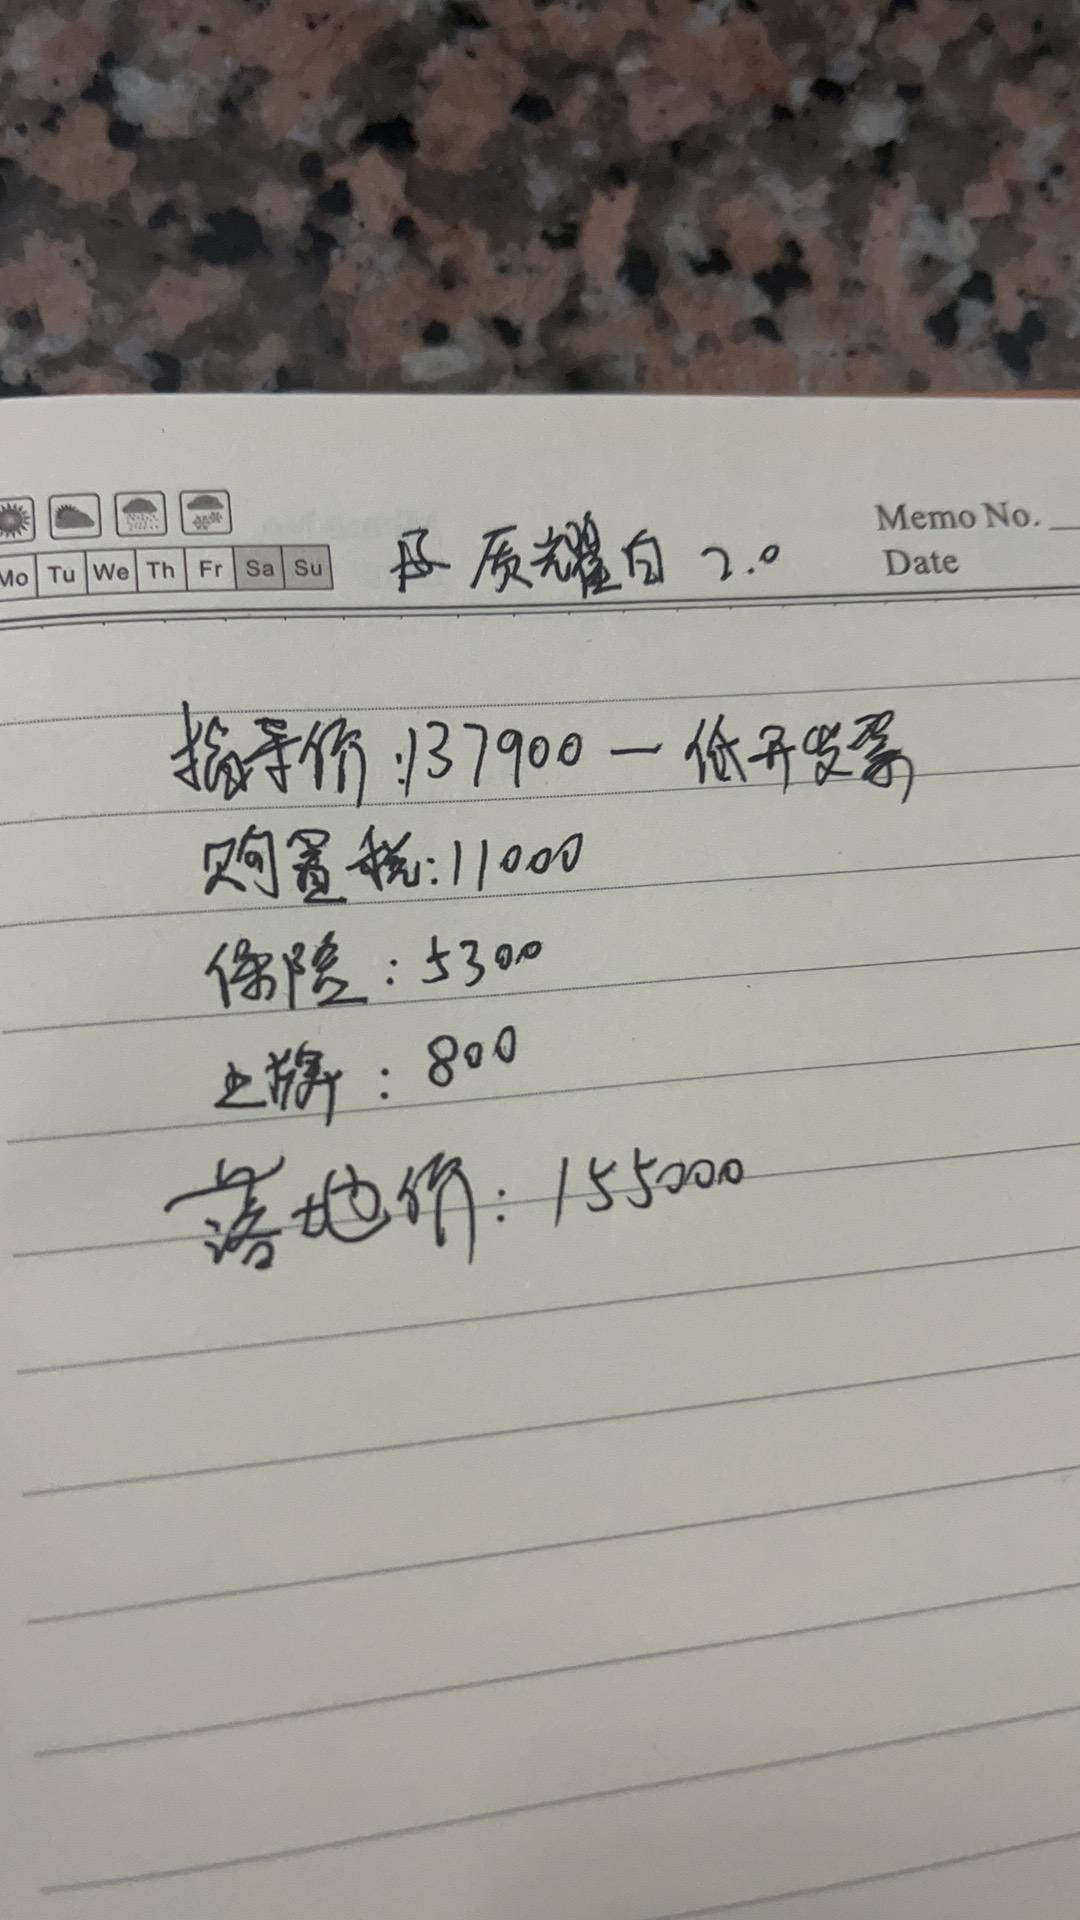 Memo No.
Mo Tu We Th Fr Sa Su
质耀白 2.0
Date
指导价:137900 — 低开发票
购置税:11000
保险:5300
上牌:800
落地价:155000